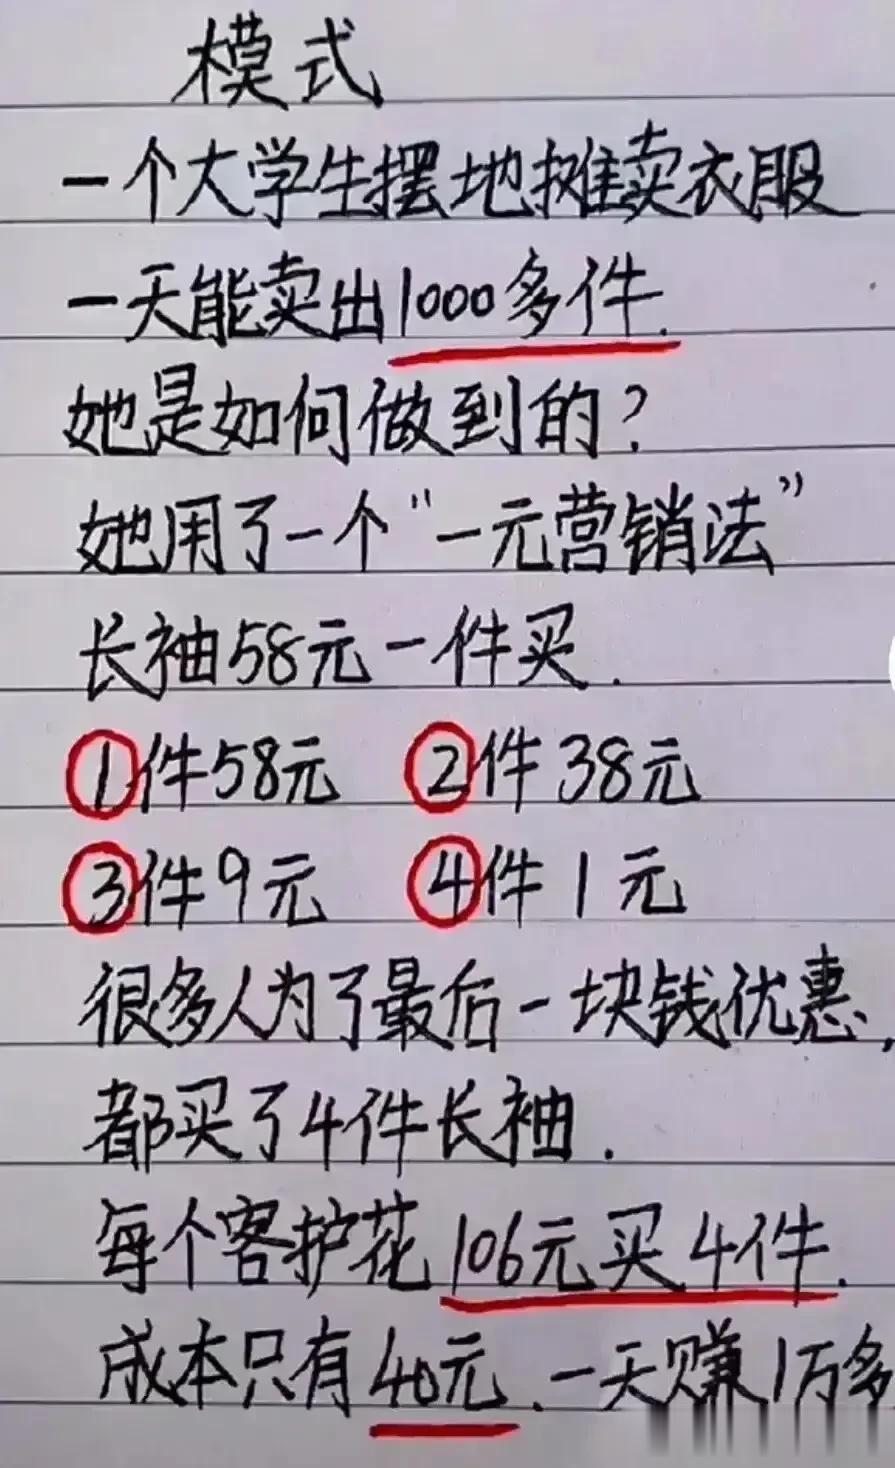 模式
一个大学生摆地摊卖衣服
一天能卖出1000多件.
她是如何做到的?
她用了一个“一元营销法”
长袖58元一件买.
①件58元 ②件38元
③件9元 ④件1元
很多人为了最后一块钱优惠,
都买了4件长袖.
每个客护花106元买4件.
成本只有40元.一天赚1万多